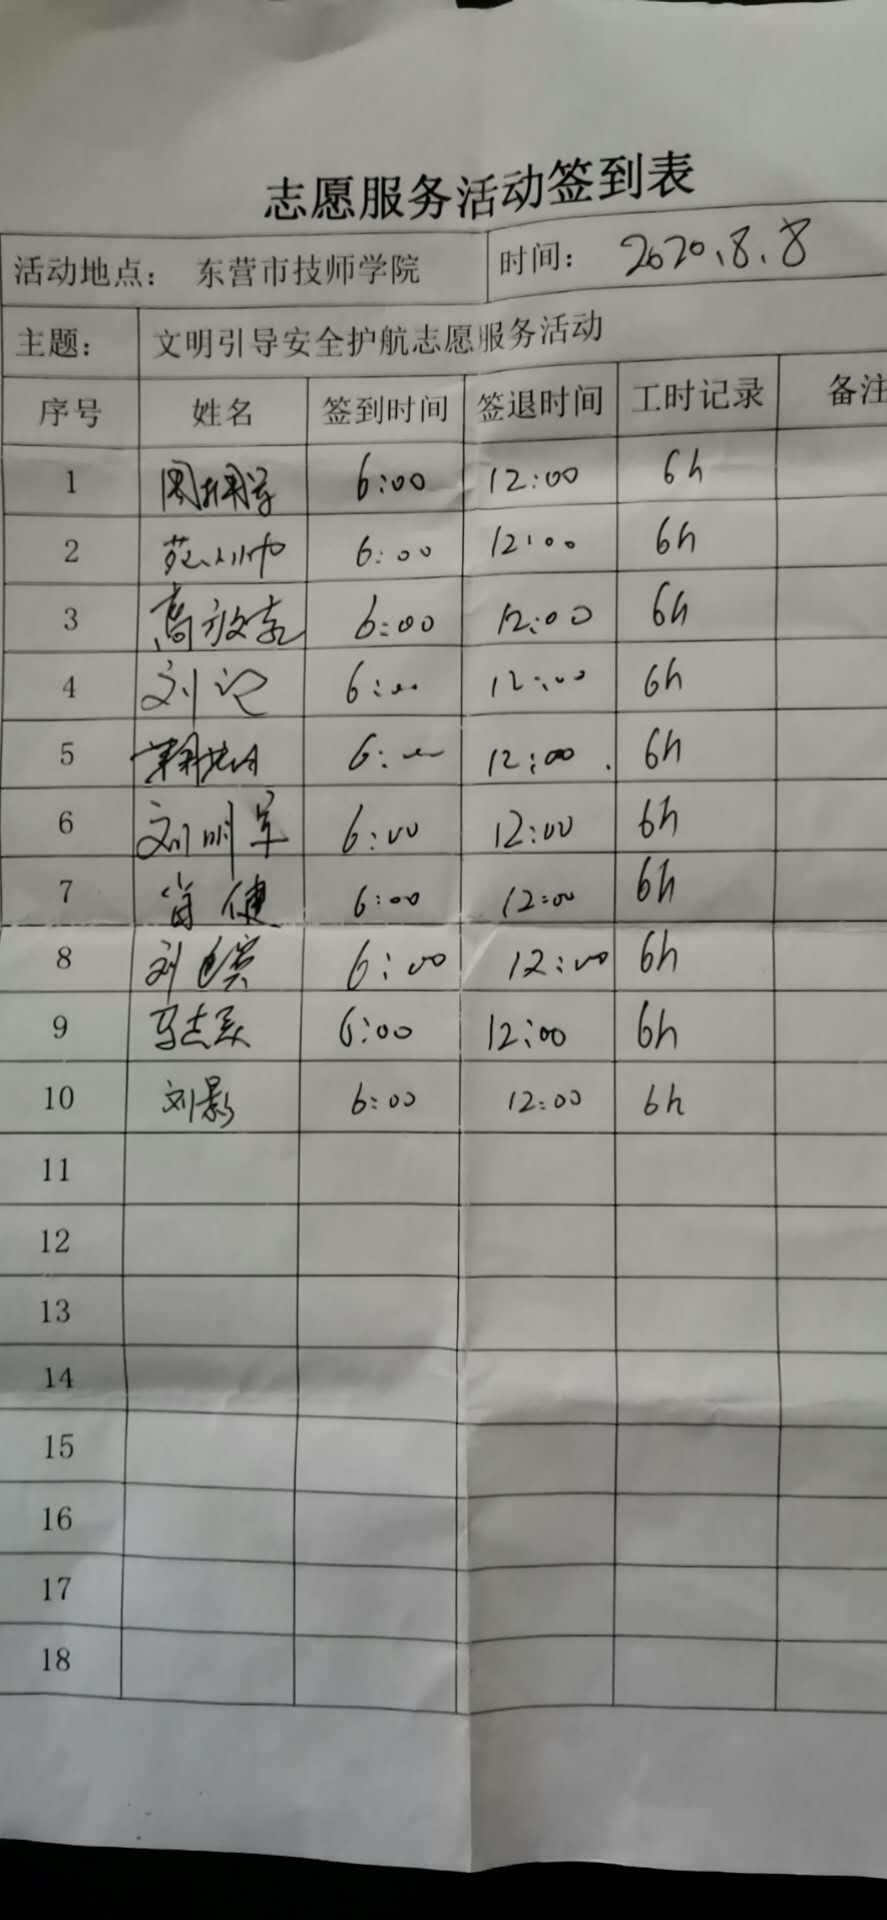 志愿服务活动签到表
活动地点： 东营市技师学院 时间： 2020.8.8
主题： 文明引导安全护航志愿服务活动
序号 姓名 签到时间 签退时间 工时记录 备注
1 6:00 12:00 6h
2 6:00 12:00 6h
3 6:00 12:00 6h
4 刘记 6:00 12:00 6h
5 6:00 12:00 6h
6 刘明军 6:00 12:00 6h
7 肖健 6:00 12:00 6h
8 刘 6:00 12:00 6h
9 6:00 12:00 6h
10 刘影 6:00 12:00 6h
11
12
13
14
15
16
17
18